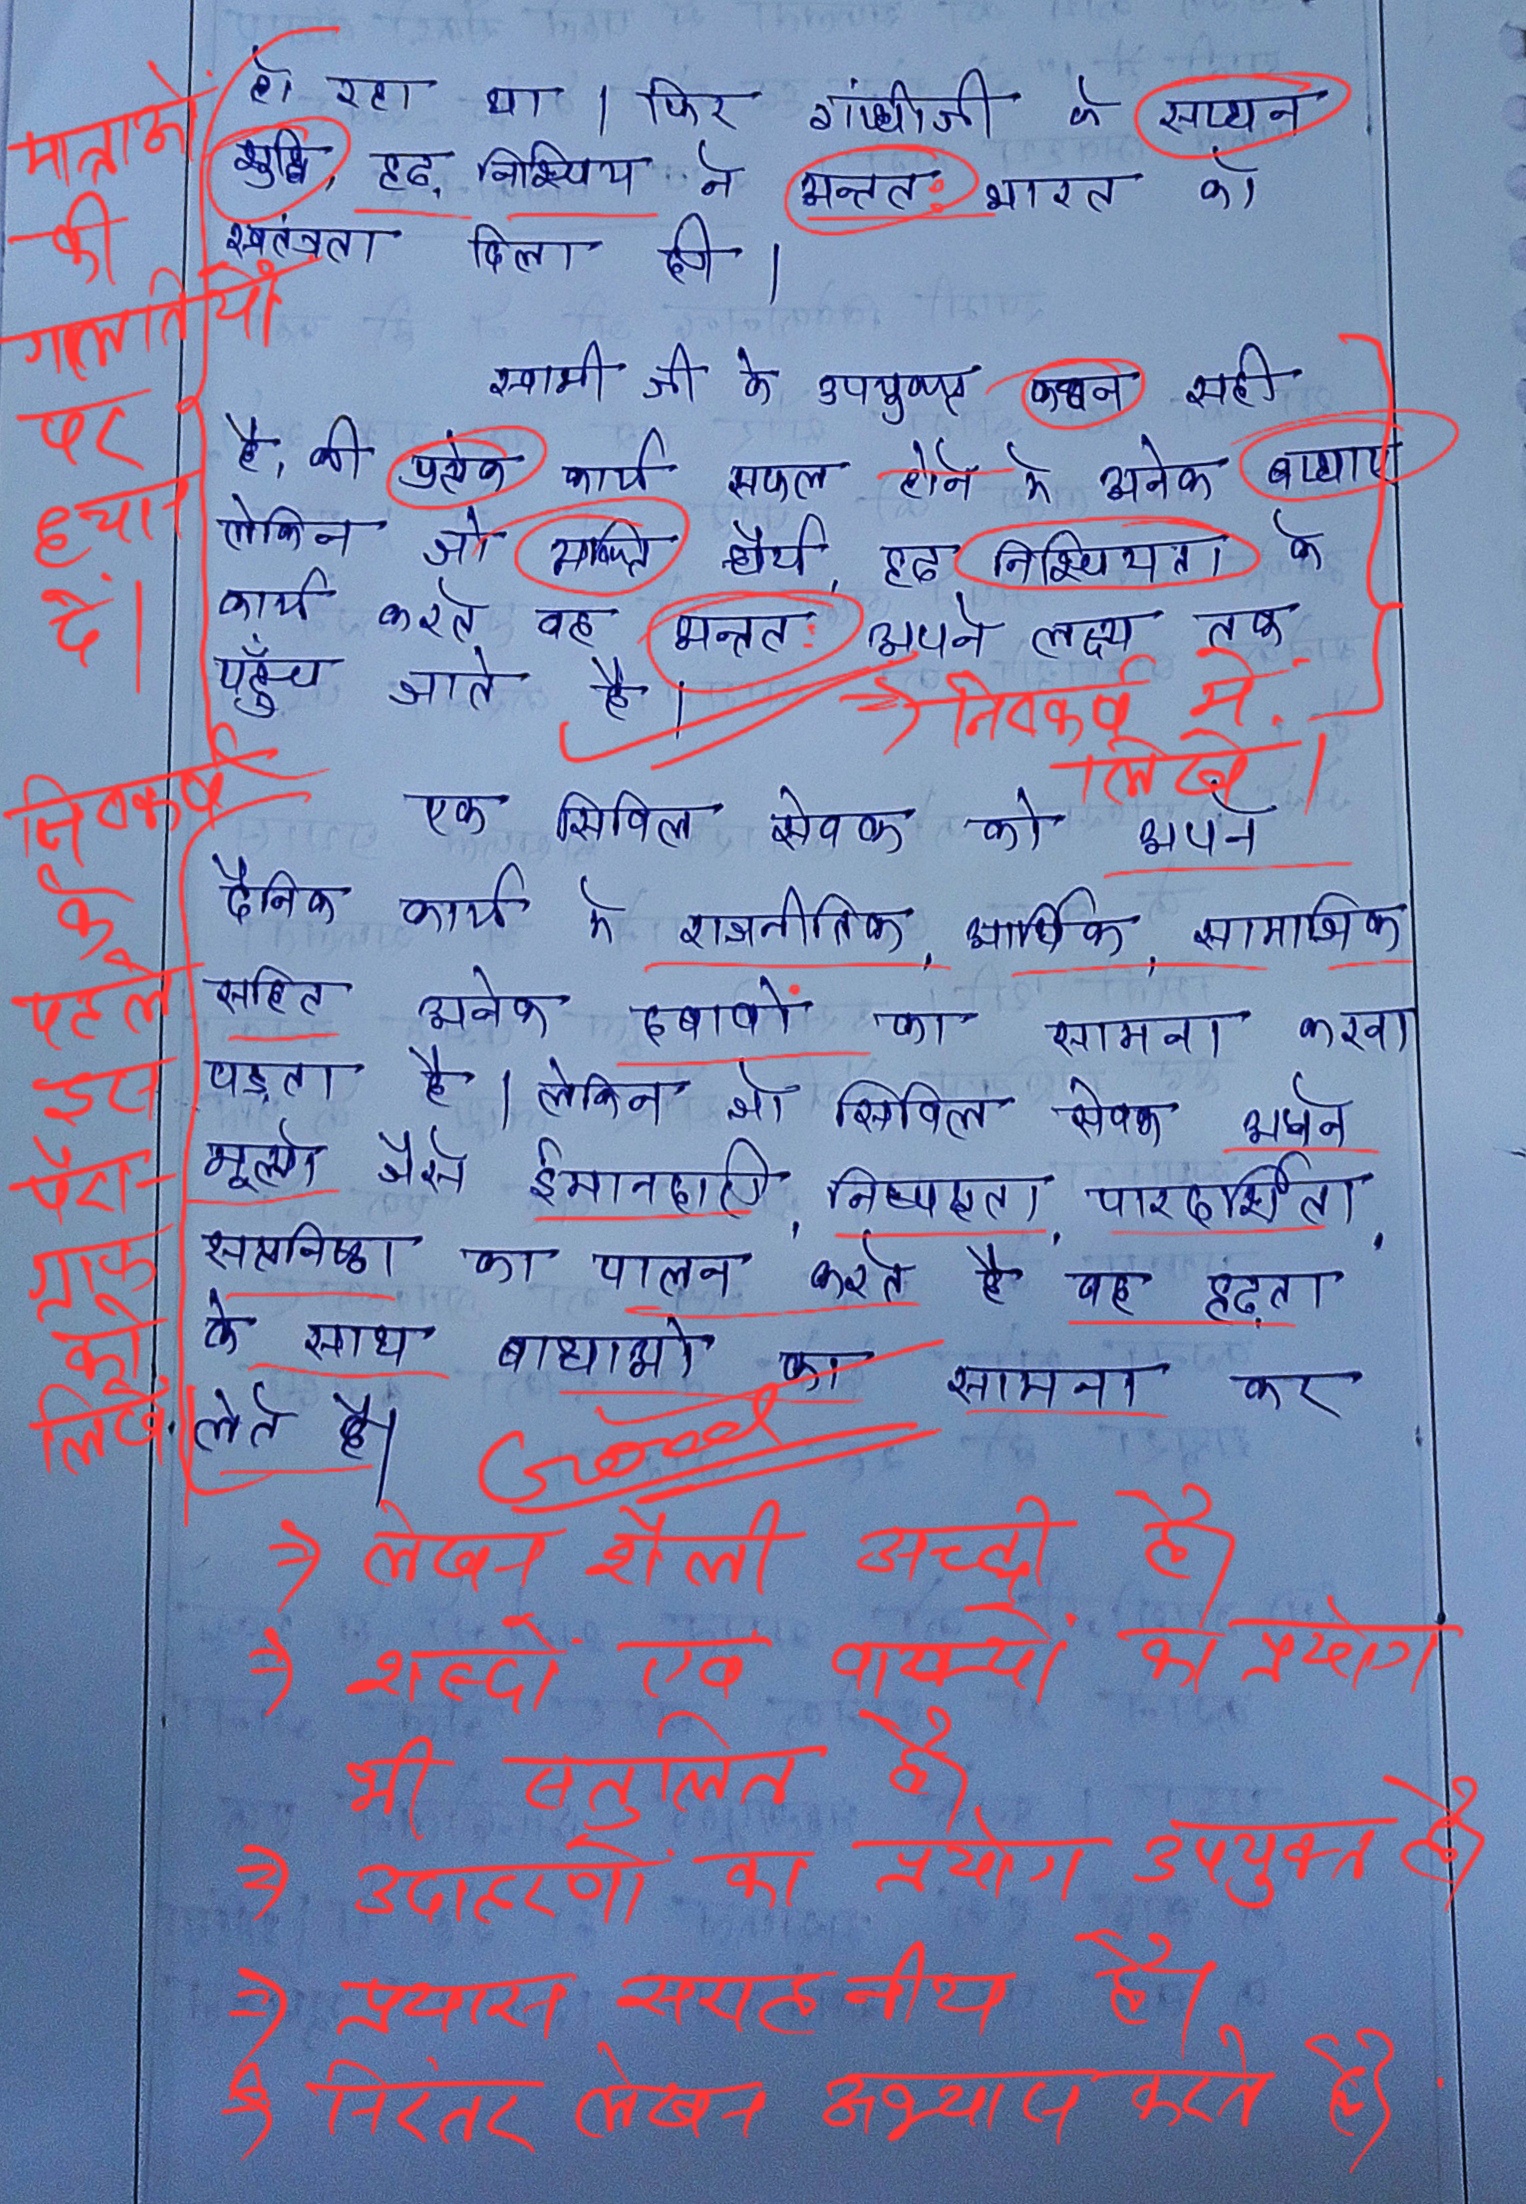 हो रहा था । फिर गांधीजी के साधन
शुद्धि, दृढ, निश्चिय ने अन्तत: भारत को
स्वतंत्रता दिला दी ।
मात्राओं
की
गलतियों
पर
ध्यान
दें ।
स्वामी जी के उपयुक्त कथन सही
है, की प्रत्येक कार्य सफल होने मे अनेक बाधाए
लेकिन जो व्यक्ति धैर्य, दृढ निश्चियता के
कार्य करते वह अन्तत: अपने लक्ष्य तक
पहुँच जाते है ।
⇒ निष्कर्ष में
लिखें ।
निष्कर्ष
के
पहले
इस
पैरा-
ग्राफ
को
लिखें.
एक सिविल सेवक को अपने
दैनिक कार्य मे राजनीतिक, आर्थिक, सामाजिक
सहित अनेक दबावों का सामना करना
पड़ता है । लेकिन जो सिविल सेवक अपने
मूल्यो जैसे ईमानदारी, निष्पक्षता, पारदर्शिता,
सत्यनिष्ठा का पालन करते है वह दृढ़ता
के साथ बाधाओ का सामना कर
लेते है।
Good
⇒ लेखन शैली अच्छी है।
⇒ शब्दों एवं वाक्यों का प्रयोग
भी संतुलित है।
⇒ उदाहरणों का प्रयोग उपयुक्त है।
⇒ प्रयास सराहनीय है।
⇒ निरंतर लेखन अभ्यास करते रहें।